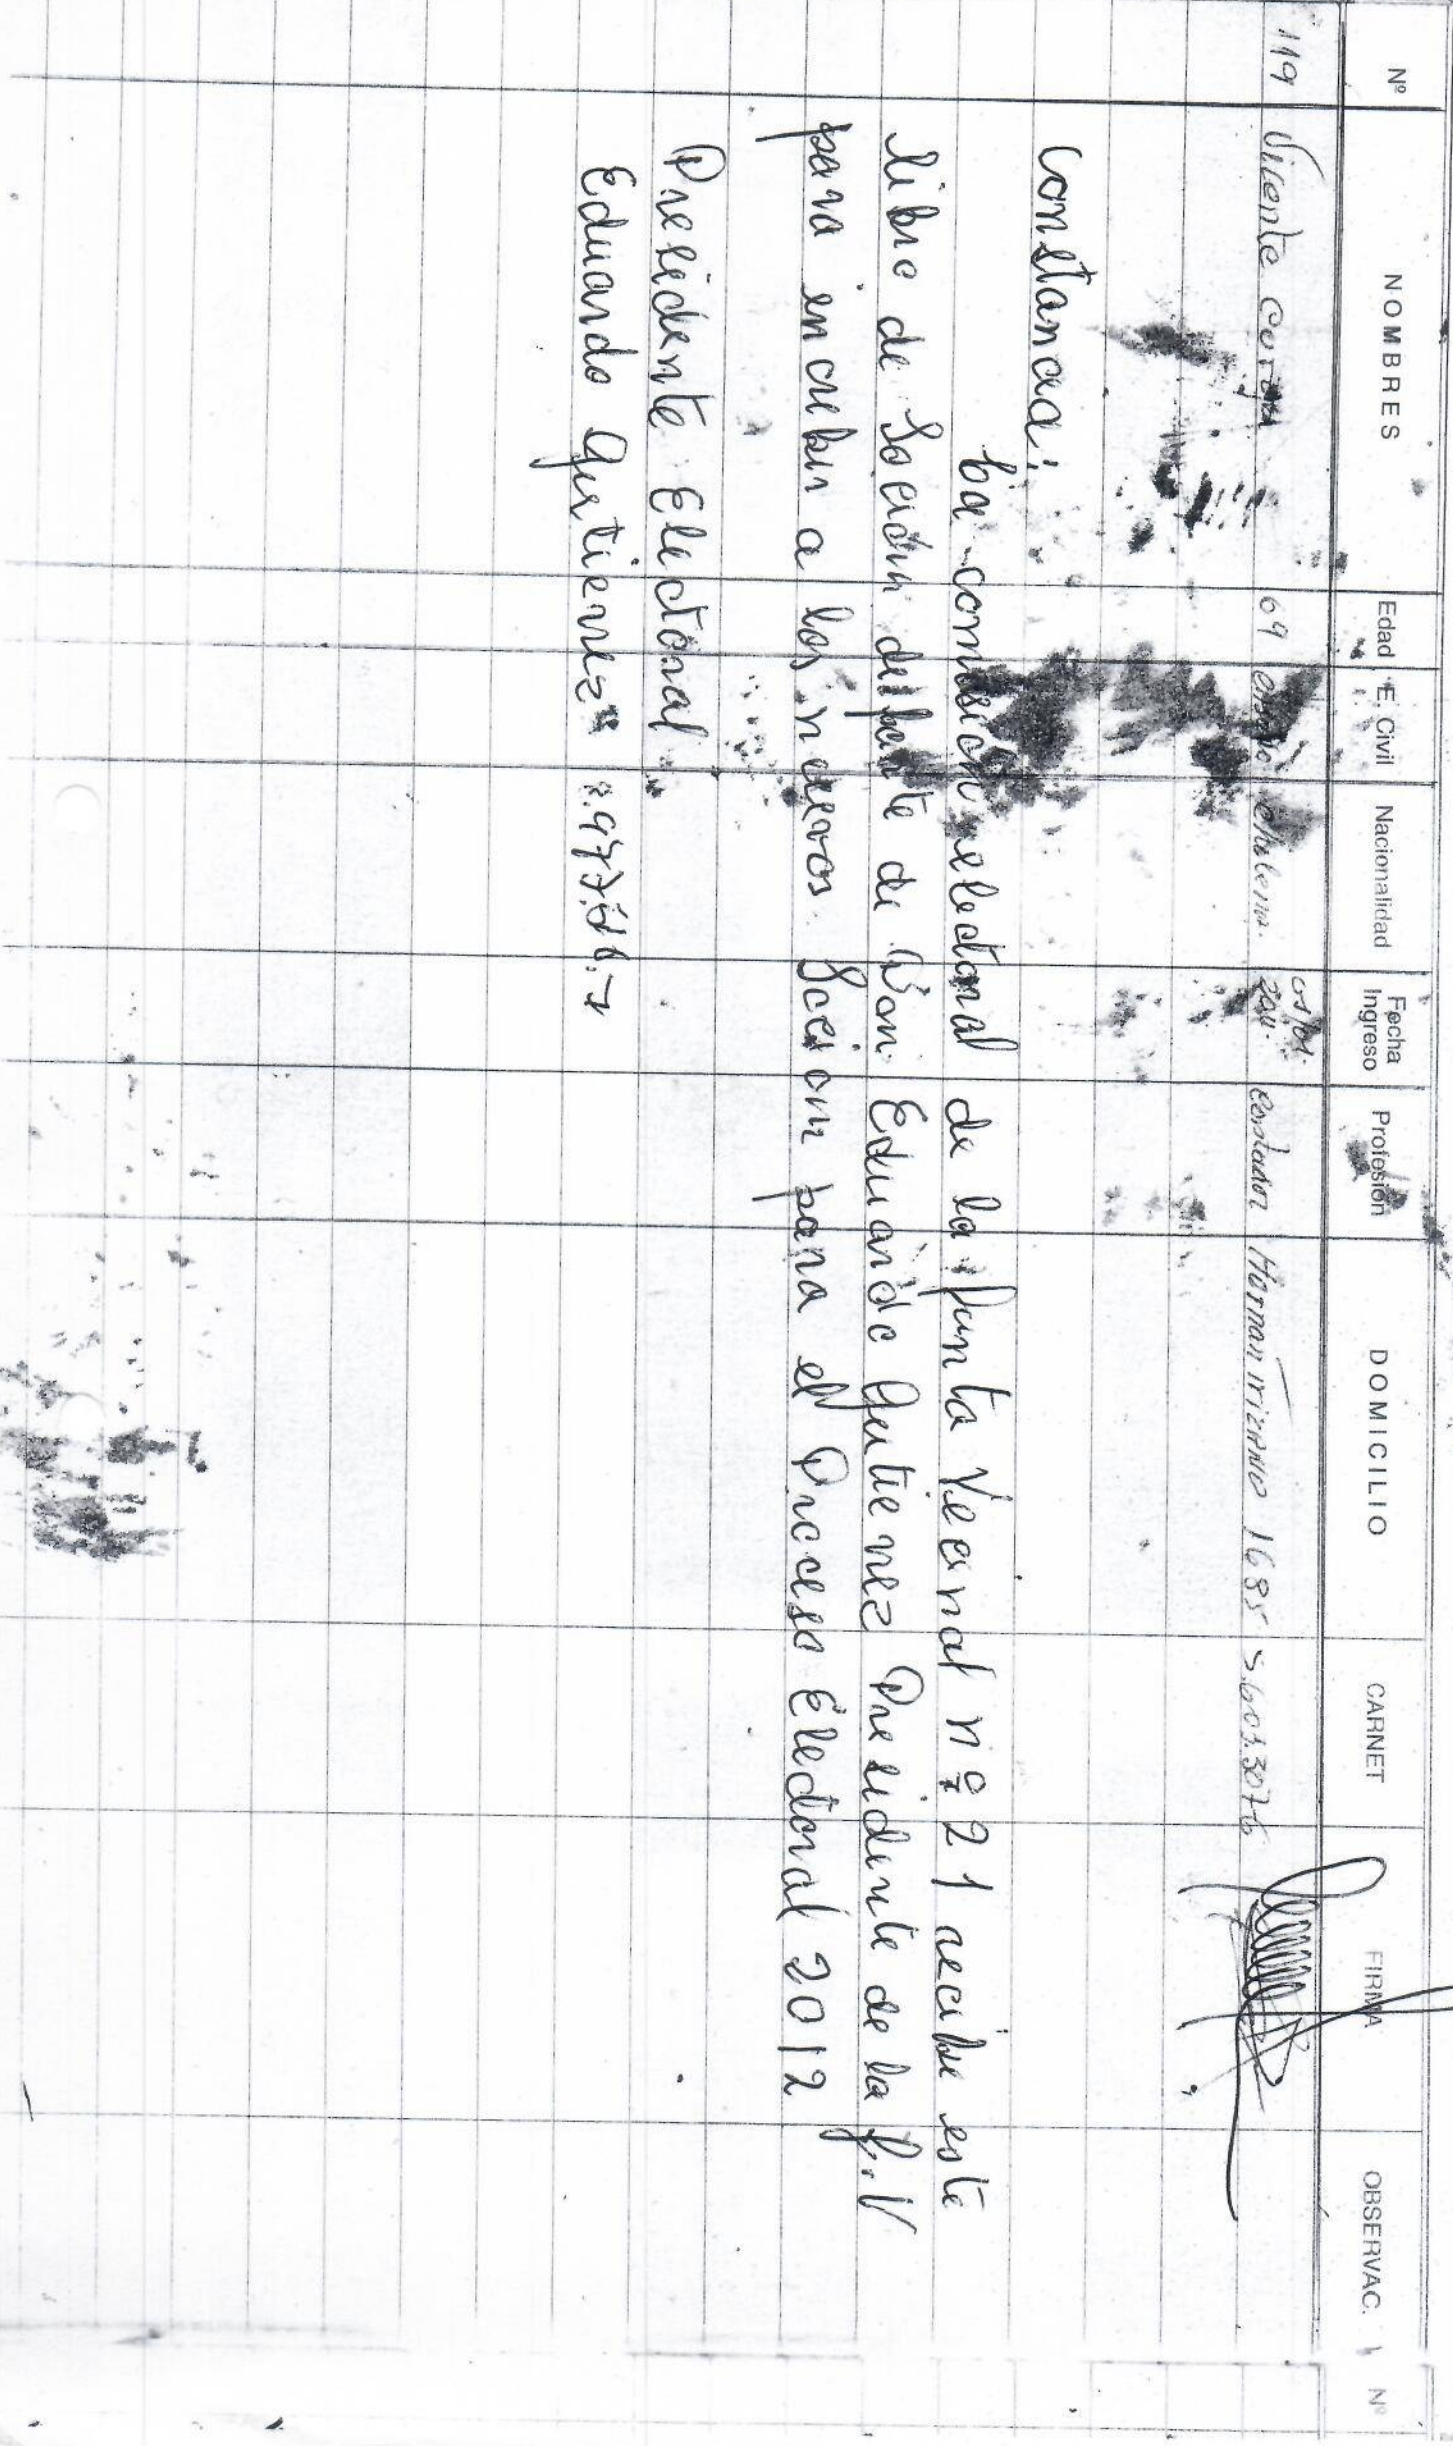 Nº NOMBRES Edad E. Civil Nacionalidad Fecha Ingreso Profesión DOMICILIO CARNET FIRMA OBSERVAC. Nº
119 Vicente 69 chilena. Contador Hernan 1685
Constancia:
La comisión electoral de la Junta Vecinal nº 21 recibe este
libro de Socios de parte de Don Eduardo Gutierrez Presidente de la J.V
para incribir a los nuevos Socios para el Proceso Electoral 2012
Presidente Electoral
Eduardo Gutierrez